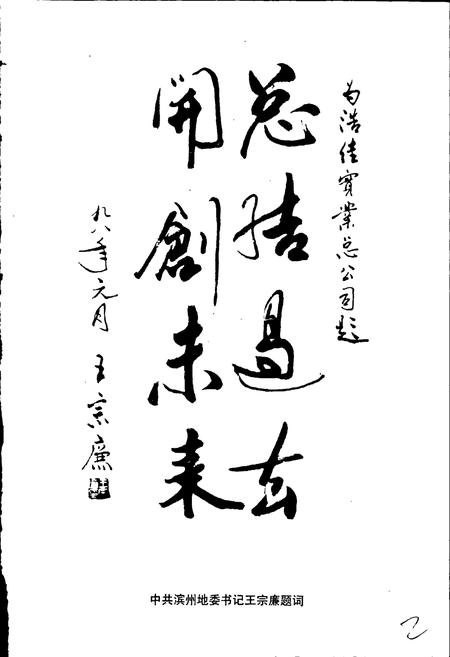 为浩佳實業总公司题
总结过去
開創未来
九八年元月
王宗廉
中共滨州地委书记王宗廉题词